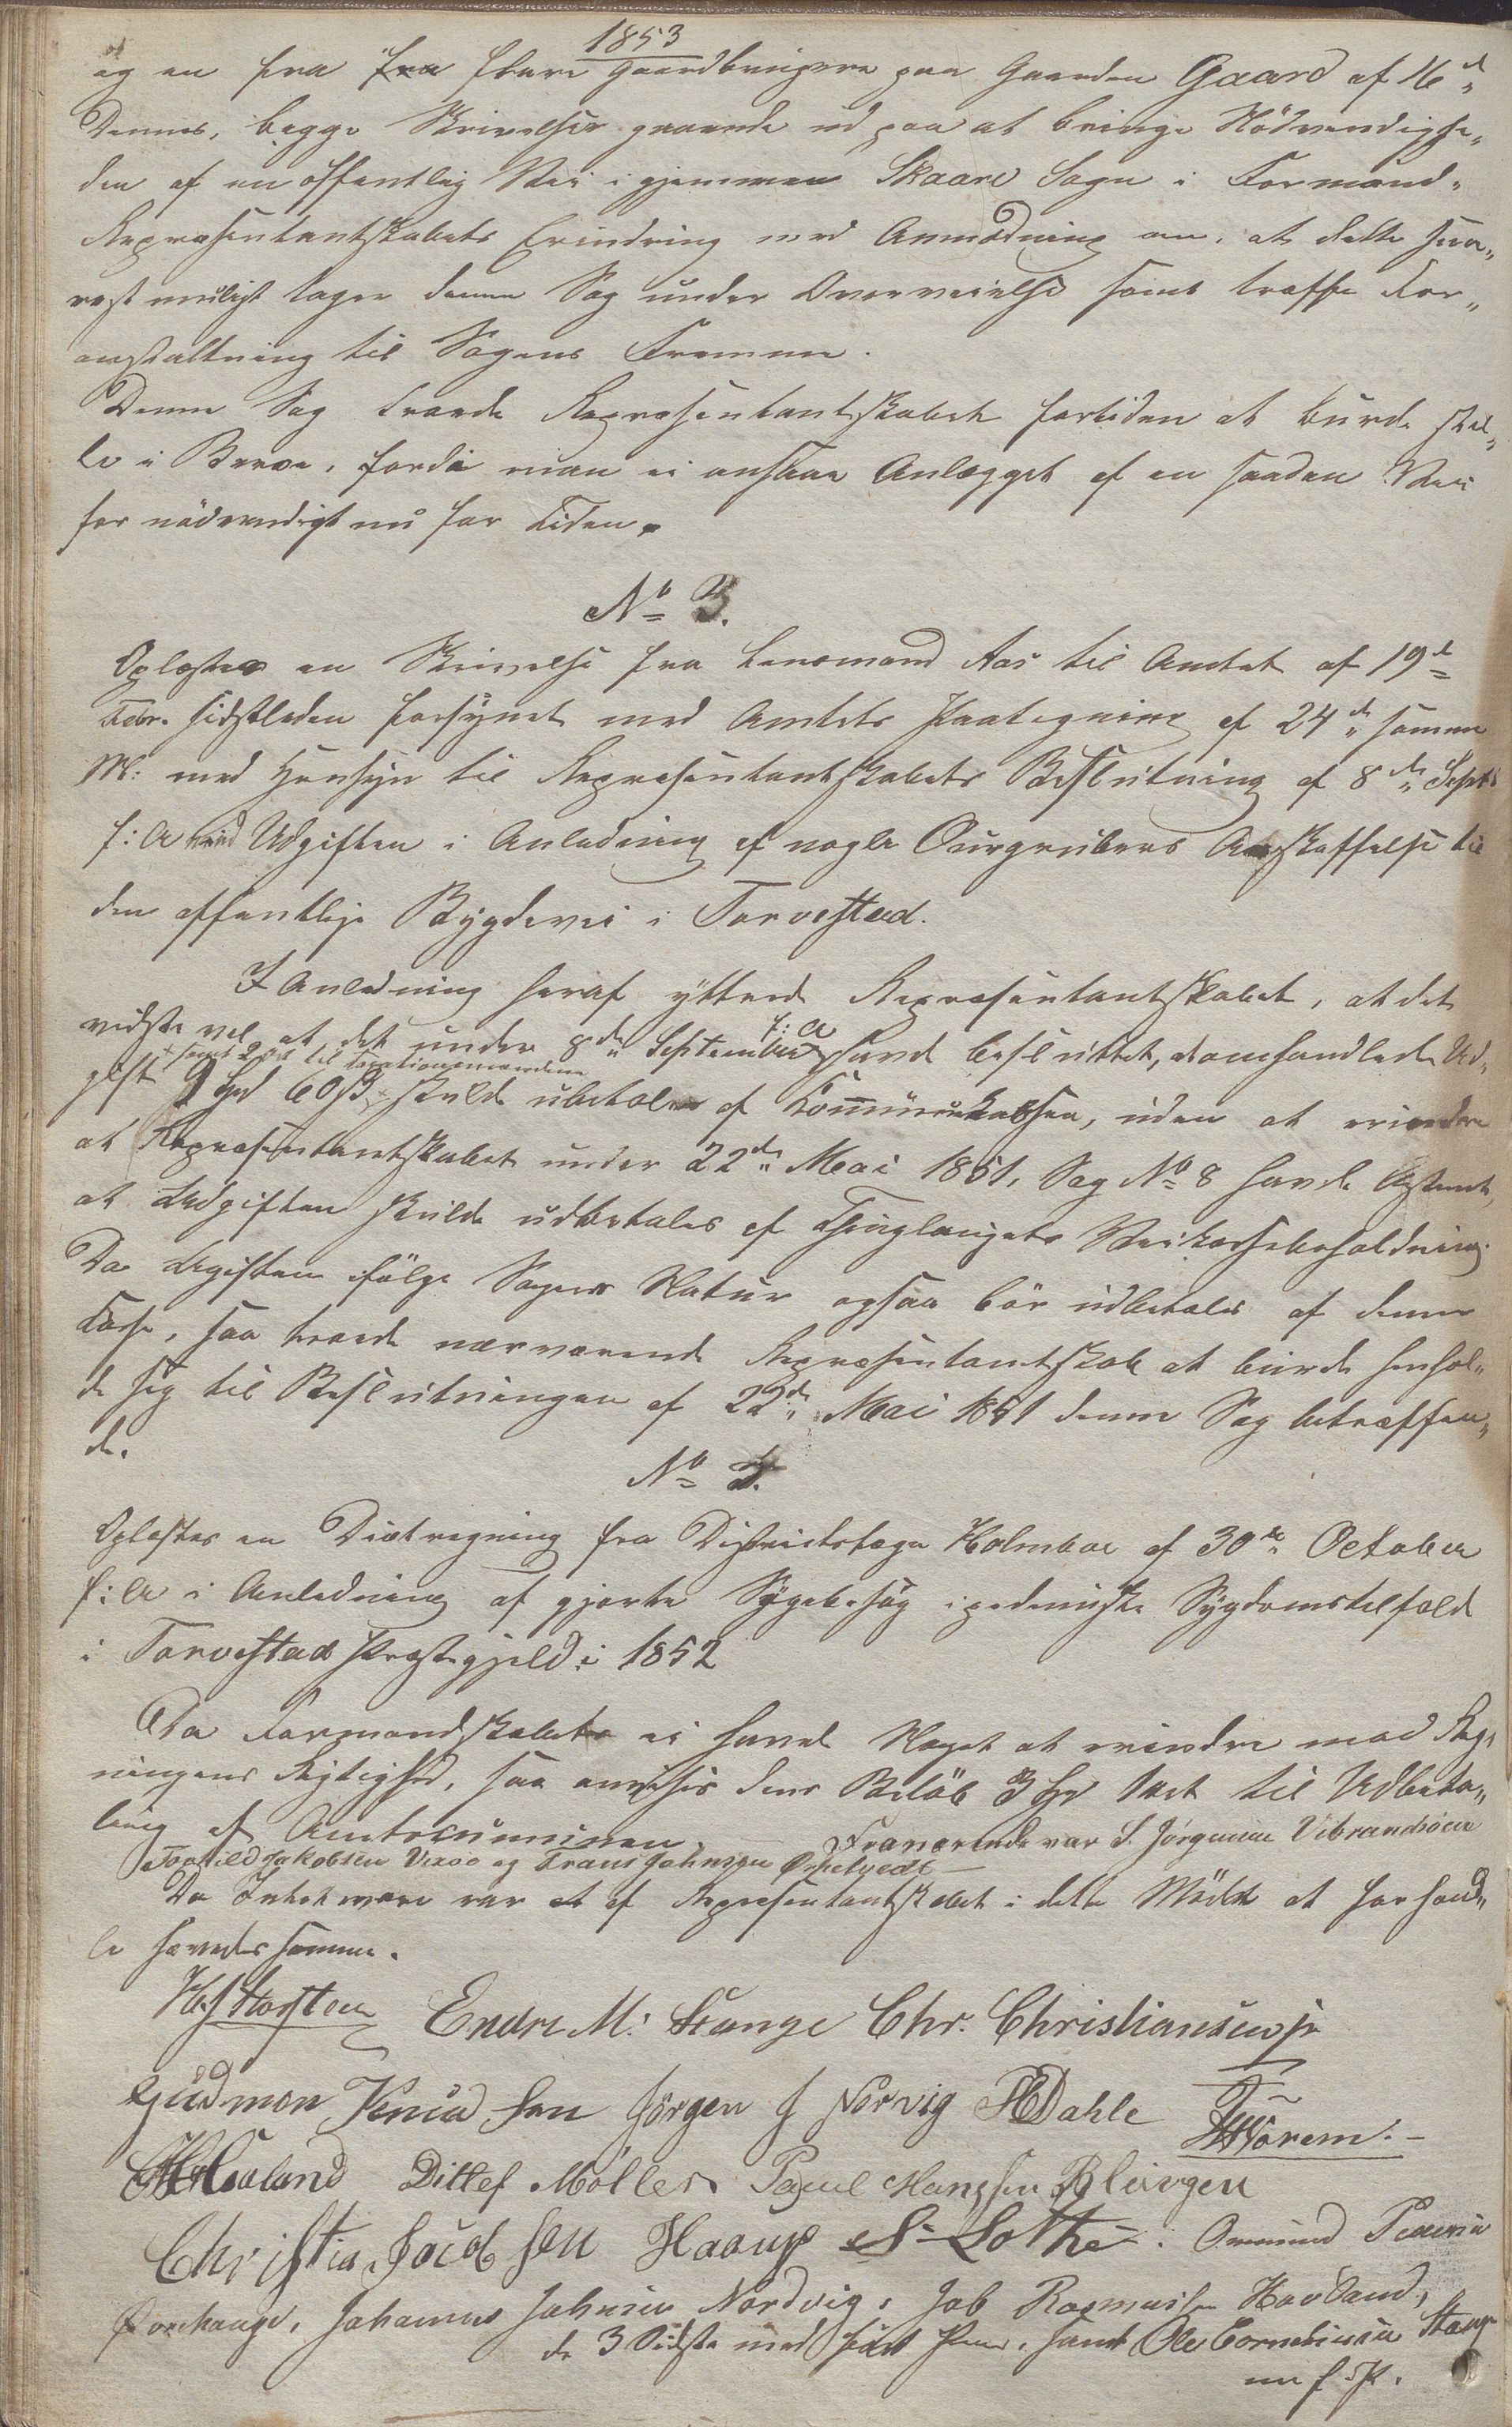 1853
og en fra fra flere Gaardbrugere paa Gaarden Gaard af 16d„
Dennes, begge Skrivelser gaaende ud paa at bringe Nödvendighe„
den af en offentlig Vei igjennem Skaare Sogn i Formand„
Repræsentantskabets Erindring med Anmodning om, at dette sna„
rest muligt tager denne Sag under Overveielse samt træffe For„
anstaltning til Sagens Fremme.
Denne Sag troede Repræsentantskabet fortiden at burde stil„
le i Bero, fordi man ei ansaae Anlægget af en saadan Vei
for nödvendigt nu for Tiden.
No 3.
Oplæstes en Skrivelse fra Lensmand Aas til Amtet af 19d
Febr. sidstleden forsynet med Amtets Paategning af 24d„ samme
M: med Hensyn til Repræsentantskabets Beslutning af 8de„ Septb
f: A Udgiften i Anledning af nogle Anskaffelse til
den offentlige Bygdevei i Torvestad.
I Anledning heraf yttrede Repræsentantskabet, at det
vidste vel at det under 8de„ September f: A havde besluttet, at omhandlede Ud„
gift 9 Spd 60 ß + samt 2 Ort til Taxationsmændene skulde udbetales af Kommunekassen, uden at erindre
at Repræsentantskabet under 22de„ Mai 1851, Sag No 8 havde bestemt,
at Udgiften skulde udbetales af Thinglaugets Veikassebeholdning.
Da Udgiften ifölge Sagens Natur ogsaa bör udbetales af denne
Casse, saa troede nærværende Repræsentantskab at burde henhol„
de sig til Beslutningen af 22de„ Mai 1851 denne Sag betræffen„
de.
No 4.
Oplæstes en Diætregning fra Districtslæge Holmboe af 30te„ October
f: A i Anledning af gjorte Sygebesög i epidemiske Sygdomstilfæld
i Torvestad Præstegjeld i 1852
Da Formandskabet ei havde Noget at erindre mod Reg„
ningens Rigtighed, saa anvises dens Belöb 3 Spd 1 Ort til Udbeta„
ling af Amtscommunen. Fraværende var S. Jørgensen Vibrandsöen
Torkild Jakobsen Vaage og Frans Johnsen Ørpetvedt —
Da Intet mere var at af Repræsentantskabet i dette Möde at forhand„
le hævedes samme.
Endre M: Stange Chr. Christiansen jr
Gudmon Knud sen Jörgen J Norvig HDahle HHVorem.
Haaland Ditlef Møller Paul Hansen Bleivgen
Christian Jacob sen Haaup S Lothe. Ommund
Forchaug, Johannes Johnsen Nordvig, Job Rasmusen Havland,
de 3 Sidste med ført Pen, samt Ole Corneliusen Stang
m. f. P.